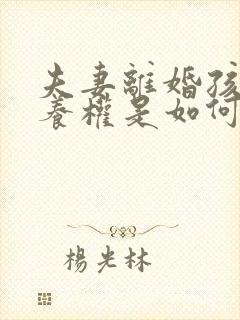 夫妻離婚孩
養權是如何
楊光林